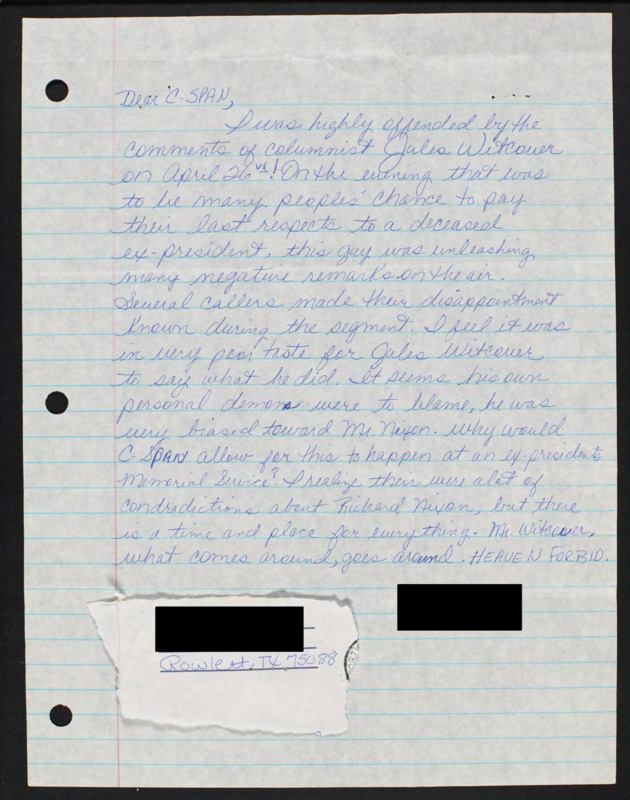 Dear C-SPAN,
I was highly offended by the
comments of columnist Jules Witcover
on April 26th! On the evening that was
to be many peoples' chance to pay
their last respects to a deceased
ex-president, this guy was unleashing
many negative remarks on the air.
Several callers made their disappointment
known during the segment. I feel it was
in very poor taste for Jules Witcover
to say what he did. It seems his own
personal demons were to blame, he was
very biased toward Mr. Nixon. Why would
C-SPAN allow for this to happen at an ex-presidents
Memorial Service? I realize their were alot of
condradictions about Richard Nixon, but there
is a time and place for everything. Mr. Witcover,
what comes around, goes around. HEAVEN FORBID.
Rowlett, TX 75088